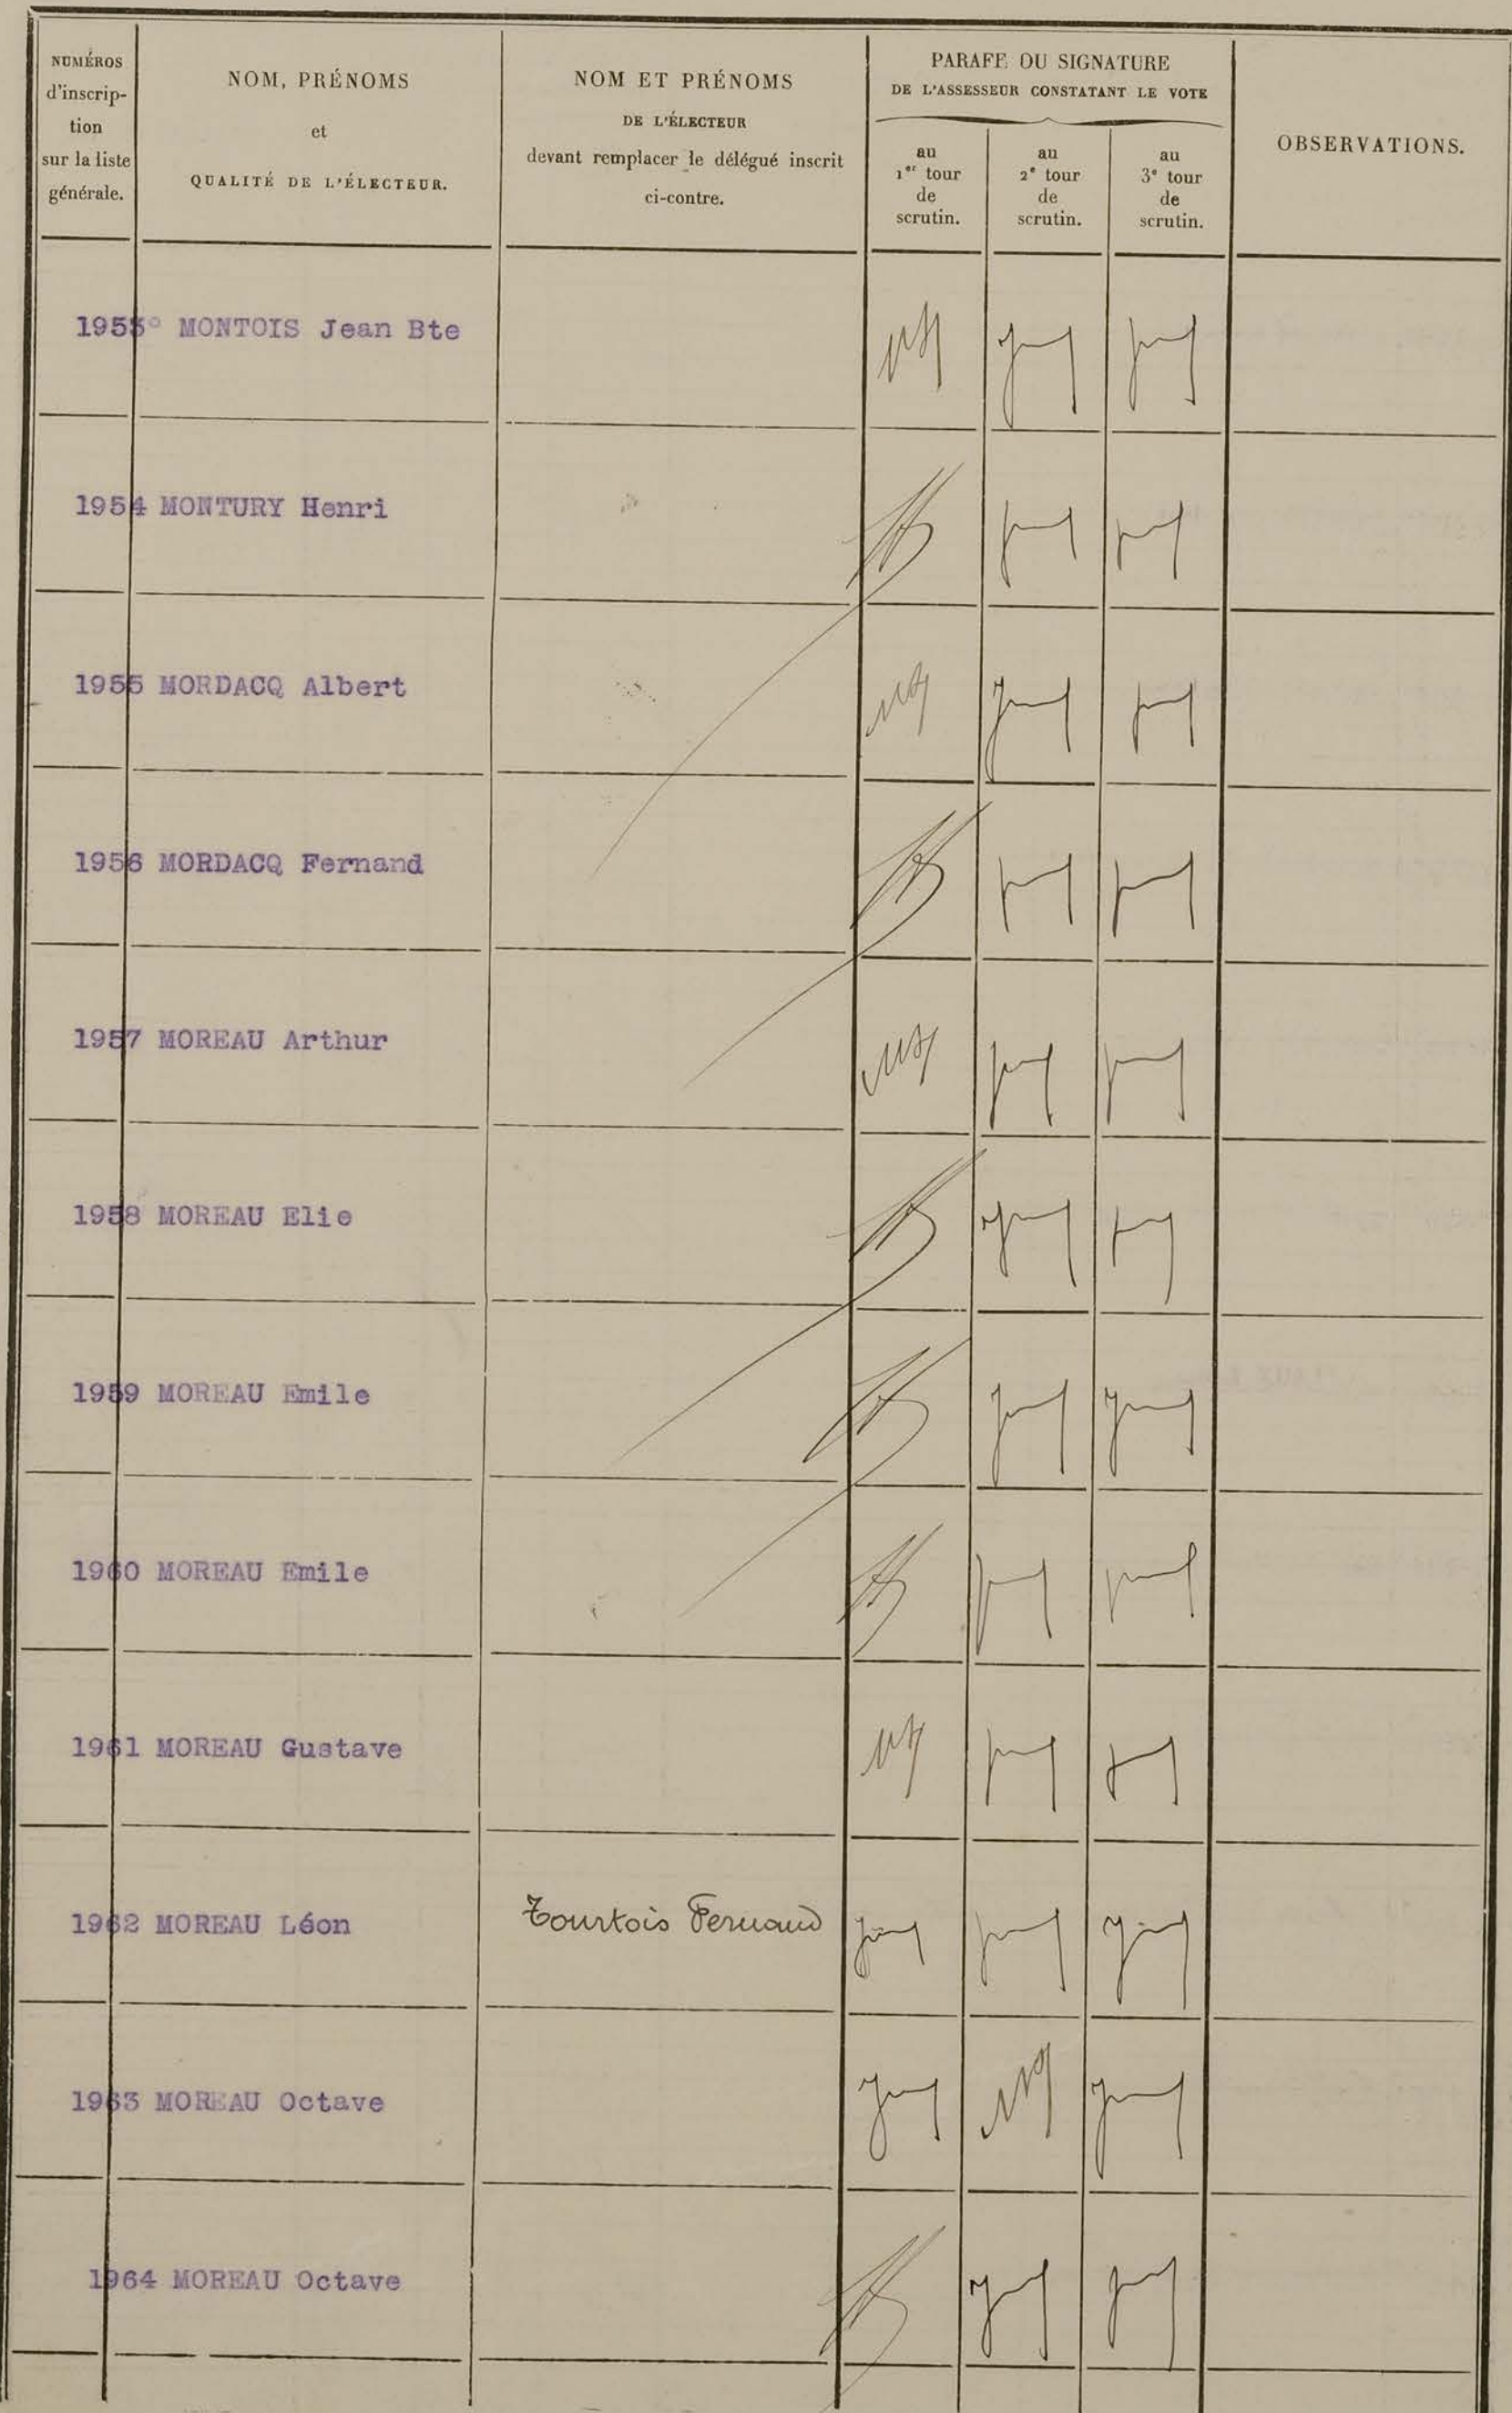 NUMÉROS
d'inscrip-
tion
sur la liste
générale.
NOM, PRÉNOMS
et
QUALITÉ DE L'ÉLECTEUR.
NOM ET PRÉNOMS
DE L'ÉLECTEUR
devant remplacer le délégué inscrit
ci-contre.
PARAFE OU SIGNATURE
DE L'ASSESSEUR CONSTATANT LE VOTE
au
1er tour
de
scrutin.
au
2e tour
de
scrutin.
au
3e tour
de
scrutin.
OBSERVATIONS.
1953° MONTOIS Jean Bte
1954 MONTURY Henri
1955 MORDACQ Albert
1956 MORDACQ Fernand
1957 MOREAU Arthur
1958 MOREAU Elie
1959 MOREAU Emile
1960 MOREAU Emile
1961 MOREAU Gustave
1962 MOREAU Léon Tourtois Fernand
1963 MOREAU Octave
1964 MOREAU Octave